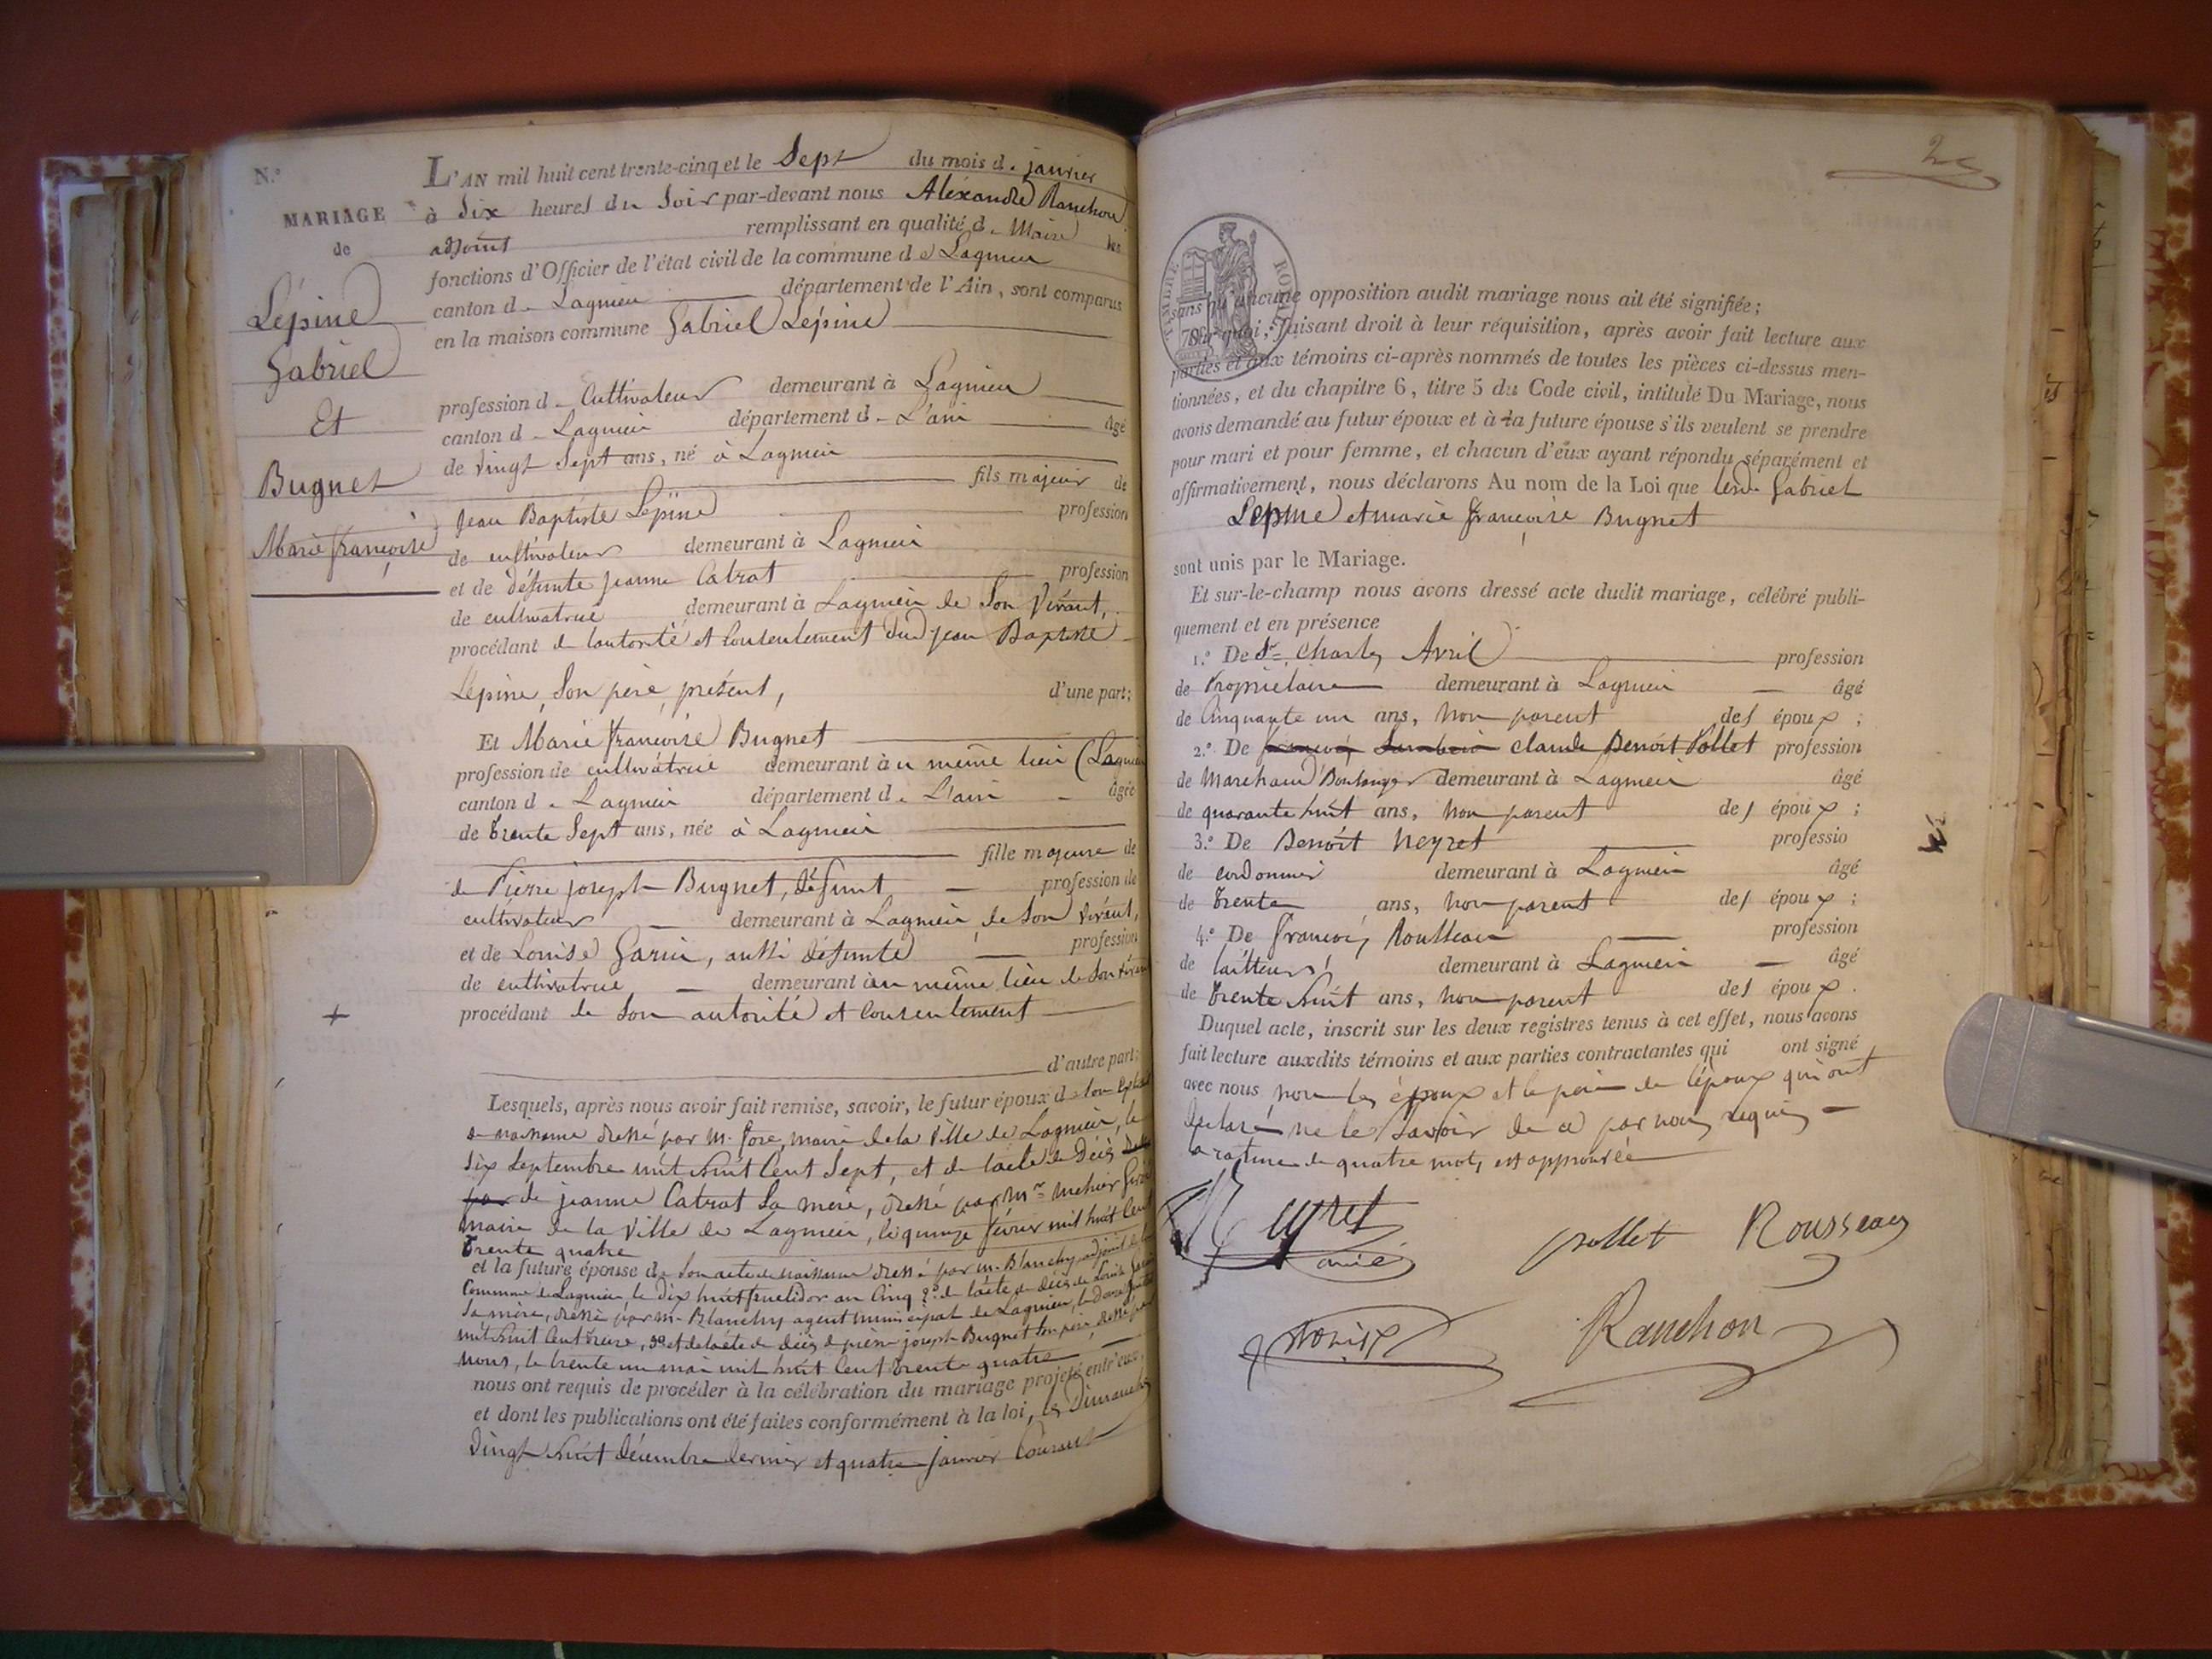 N.°
MARIAGE
de
Lépine
Gabriel
Et
Bugnet
Marie françoise
L'AN mil huit cent trente-cinq et le Sept du mois d. janvier
à Six heures du Soir par-devant nous Aléxandre Ranchon
adjoint remplissant en qualité d. Maire les
fonctions d'Officier de l'état civil de la commune de Lagnieu
canton d. Lagnieu département de l'Ain, sont comparus
en la maison commune Gabriel Lépine
profession d. Cultivateur demeurant à Lagnieu
canton d. Lagnieu département d. L'ain âgé
de Vingt Sept ans, né à Lagnieu
fils majeur de
Jean Baptiste Lépine profession
de cultivateur demeurant à Lagnieu
et de défunte jeanne Catrat profession
de cultivatrice demeurant à Lagnieu de Son Vivant,
procédant de l'autorité et Consentement dud. jean Baptiste
Lépine, Son père, présent, d'une part;
Et Marie françoise Bugnet
profession de cultivatrice demeurant à u même lieu (Lagnieu
canton d. Lagnieu département d. L'ain âgée
de trente Sept ans, née à Lagnieu
fille majeure de
de Pierre joseph Bugnet, défunt, profession de
cultivateur demeurant à Lagnieu, de Son Vivant,
et de Louise Garin, aussi défunte profession
de cultivatrice demeurant au même lieu de Son vivant
+ procédant de Son autorité et Consentement
d'autre part;
Lesquels, après nous avoir fait remise, savoir, le futur époux d
de naissance dressé par M. fore, maire de la Ville de Lagnieu, le
Six Septembre mil huit Cent Sept, et de l'acte de décès
par de jeanne Catrat Sa mère, dressé par Mr
maire de la Ville de Lagnieu, le quinze février mil huit Cent
trente quatre
et la future épouse d. Son acte de naissance dressé par M. Blanchy adjoint de la
Commune de Lagnieu, le dix huit fructidor an Cinq 2° de l'acte de décès de Louise Garin
Sa mère, dressé par M. Blanchy agent municipal de Lagnieu, le
mil huit Cent 3° et de l'acte de décès de pierre joseph Bugnet Son père, dressé par
nous, le trente un mai mil huit Cent trente quatre
nous ont requis de procéder à la célébration du mariage projeté entr'eux,
et dont les publications ont été faites conformément à la loi, les Dimanches
Vingt huit décembre dernier et quatre janvier Courant
TIMBRE ROYAL
sans qu'aucune opposition audit mariage nous ait été signifiée;
Sur quoi, faisant droit à leur réquisition, après avoir fait lecture aux
parties et aux témoins ci-après nommés de toutes les pièces ci-dessus men-
tionnées, et du chapitre 6, titre 5 du Code civil, intitulé Du Mariage, nous
avons demandé au futur époux et à la future épouse s'ils veulent se prendre
pour mari et pour femme, et chacun d'eux ayant répondu séparément et
affirmativement, nous déclarons Au nom de la Loi que lesd. Gabriel
Lépine et marie françoise Bugnet
sont unis par le Mariage.
Et sur-le-champ nous avons dressé acte dudit mariage, célébré publi-
quement et en présence
1.° De Sr. Charles Avril profession
de Propriétaire demeurant à Lagnieu âgé
de Cinquante un ans, non parent des époux;
2.° De claude Benoît Pollet profession
de Marchand Boulanger demeurant à Lagnieu âgé
de quarante huit ans, non parent des époux;
3.° De Benoît Neyret professio
de cordonnier demeurant à Lagnieu âgé
de trente ans, non parent des époux;
4.° De françois Rousseau profession
de demeurant à Lagnieu âgé
de trente huit ans, non parent des époux.
Duquel acte, inscrit sur les deux registres tenus à cet effet, nous avons
fait lecture auxdits témoins et aux parties contractantes qui ont signé
avec nous, non les époux et le père de l'époux qui ont
déclaré ne le Savoir de ce par nous requis
la rature de quatre mots est approuvée
Neyret
pollet Rousseau
Ranchon